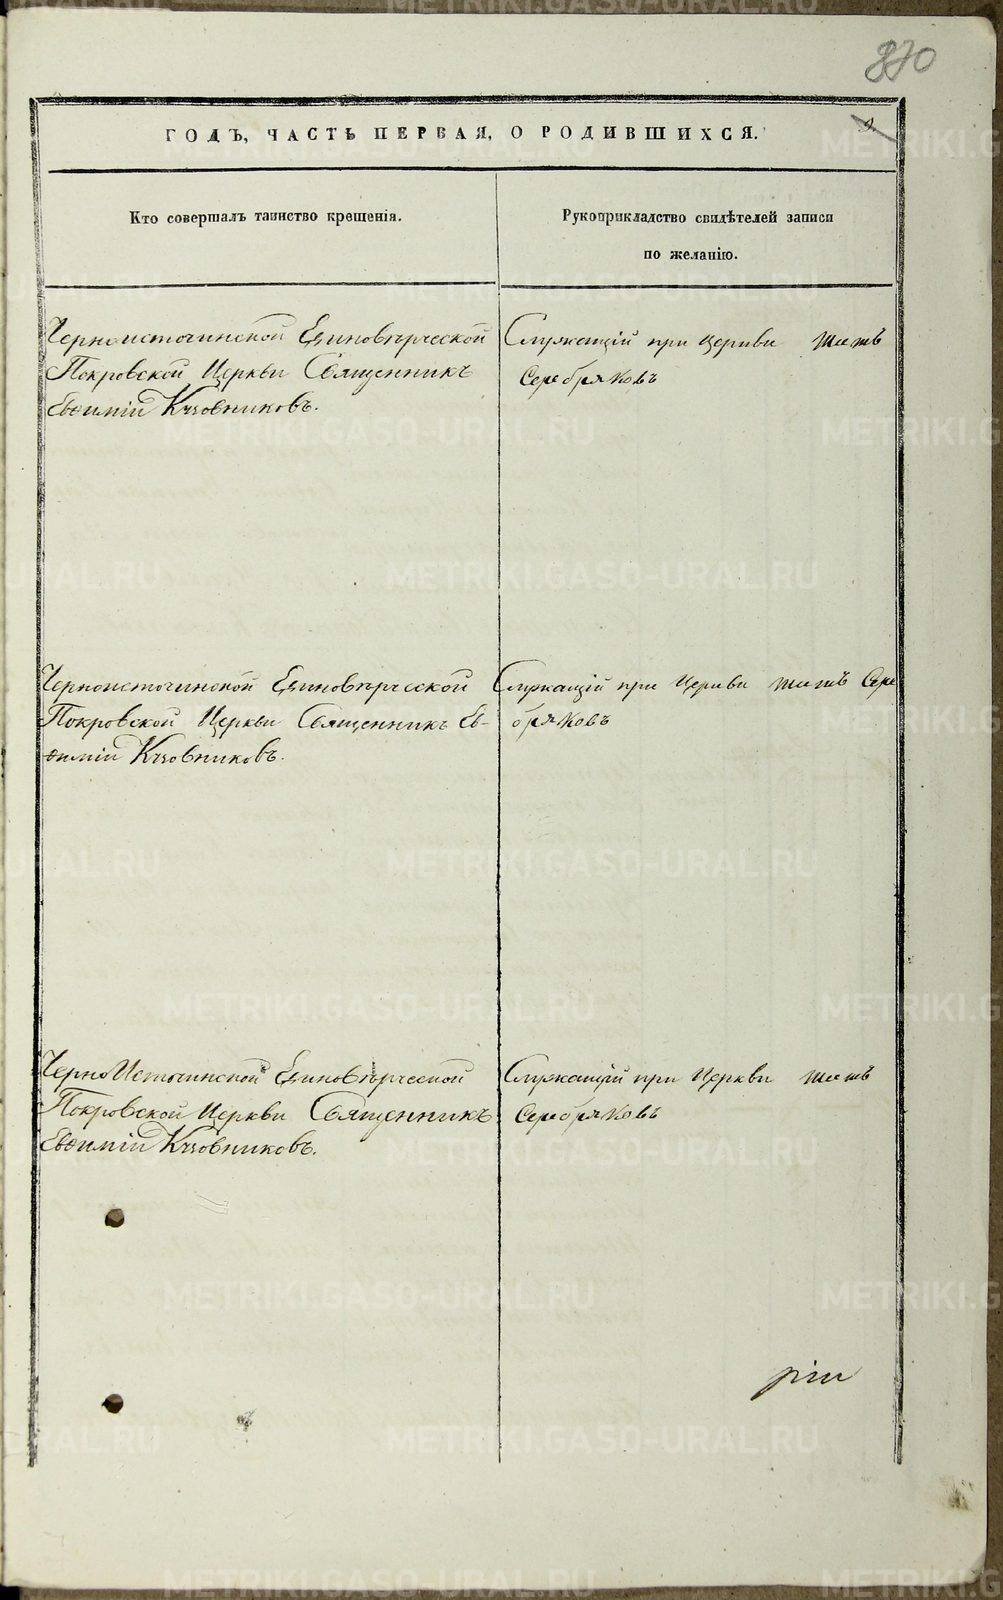 870
9.
ГОДЪ, ЧАСТЬ ПЕРВАЯ, О РОДИВШИХСЯ.
Кто совершалъ таинство крещенія.
Рукоприкладство свидѣтелей записи
по желанію.
Черноисточинской Единовѣрческой
Покровской Церкви Священникъ
Евѳимій Кузовниковъ.
Служащій при церкви
Серебряковъ
Черноисточинской Единовѣрческой
Покровской Церкви Священникъ Ев-
ѳимій Кузовниковъ.
Служащій при Церкви Сере
бряковъ
ЧерноИсточинской Единовѣрческой
Покровской Церкви Священникъ
Евѳимій Кузовниковъ.
Служащій при Церкви
Серебряковъ
METRIKI.GASO-URAL.RU